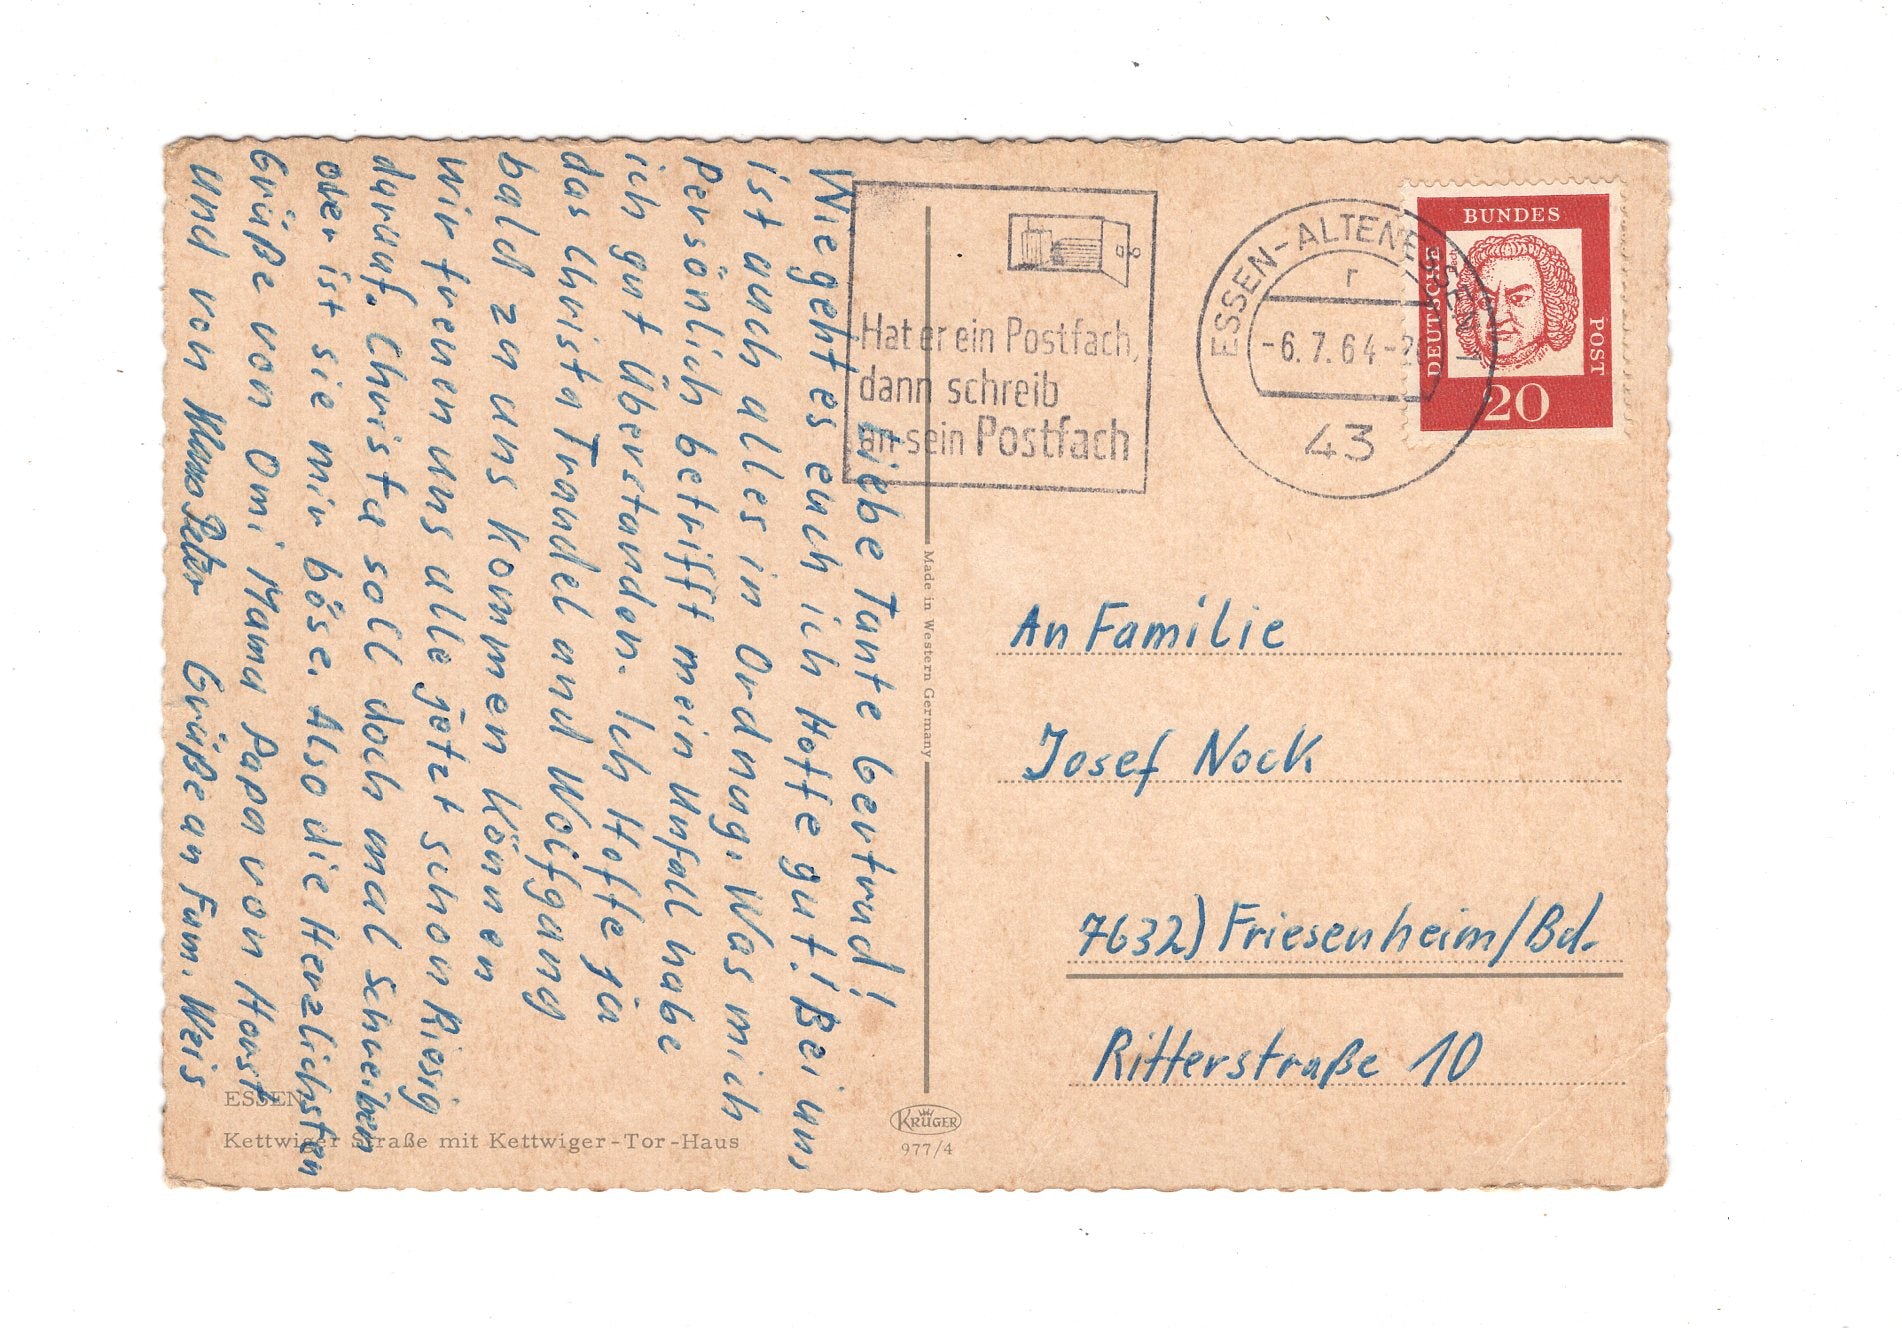 Liebe Tante Gertrud!
Wie geht es euch ich Hoffe gut! Bei uns,
ist auch alles in Ordnung. Was mich
Persönlich betrifft mein Unfall habe
ich gut Überstanden. Ich Hoffe ja
das Christa Traudel und Wolfgang
bald zu uns kommen können
wir freuen uns alle jetzt schon Riesig
darauf. Christa soll doch mal schreiben
oder ist sie mir böse. Also die Herzlichsten
Grüße von Omi Mama Papa von Horst
und von Klaus Peter Grüße an Fam. Weis
ESSEN
Kettwiger Straße mit Kettwiger-Tor-Haus
Made in Western Germany
KRÜGER
977/4
Hat er ein Postfach,
dann schreib
an sein Postfach
ESSEN-ALTENESSEN
r
-6.7.64-
43
DEUTSCHE
BUNDES
POST
20
An Familie
Josef Nock
7632) Friesenheim/Bd.
Ritterstraße 10